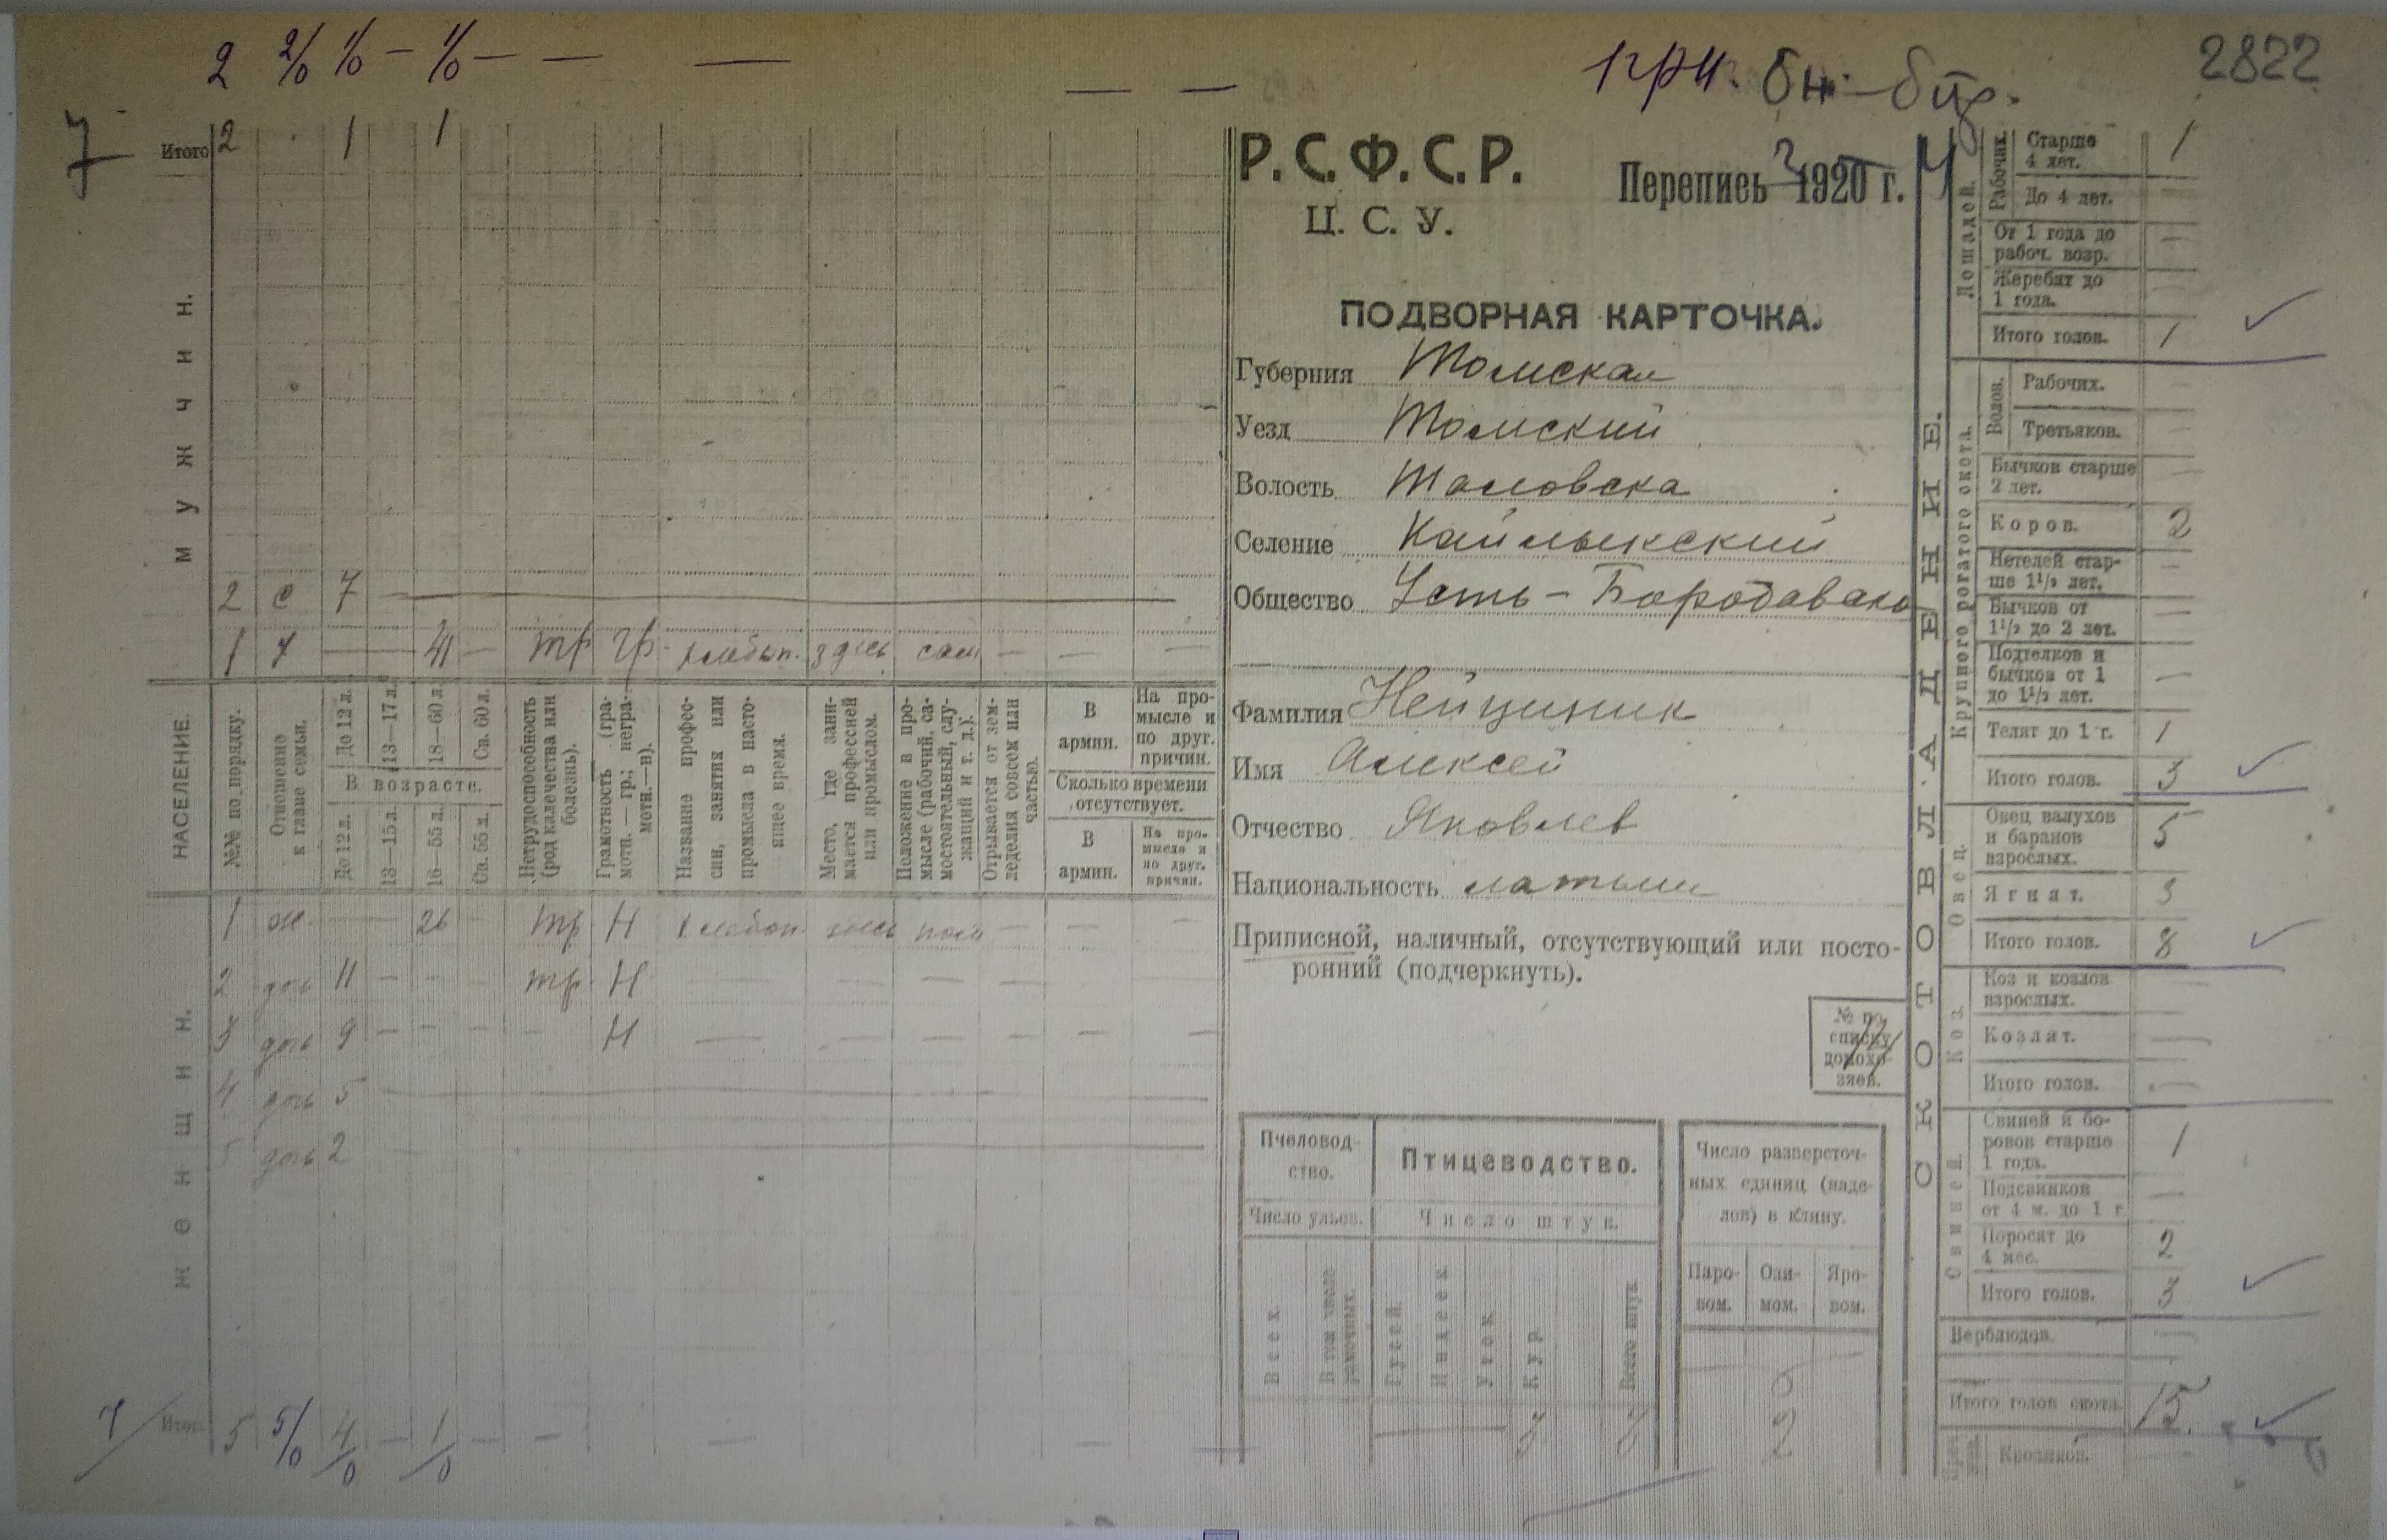 2 2/0 1/0 — 1/0 — — —
— —
1 гр 4.
2822
7
Итого 2 1 1
МУЖЧИН.
2 с 7
1 х 41 — тр гр. хлебоп. здесь сам — — —
НАСЕЛЕНИЕ.
№№ по порядку.
Отношение к главе семьи.
До 12 л.
13—17 л.
18—60 л.
Св. 60 л.
В возрасте.
До 12 л.
13—15 л.
16—55 л.
Св. 55 л.
Нетрудоспособность (род калечества или болезнь).
Грамотность (грамотн.—гр.; неграмотн.—н).
Название профессии, занятия или промысла в настоящее время.
Место, где занимается профессией или промыслом.
Положение в промысле (рабочий, самостоятельный, служащий и т. д.).
Отрывается от земледелия совсем или частью.
В армии.
На промысле и по друг. причин.
Сколько времени отсутствует.
В армии.
На промысле и по друг. причин.
ЖЕНЩИН.
1 ж. — 26 — тр Н хлебоп. здесь пом — — —
2 дочь 11 — тр Н — — — —
3 дочь 9 — — — — Н — — — — — —
4 дочь 5
5 дочь 2
7
Итого 5 5/0 4/0 — 1/0 — — — —
Р.С.Ф.С.Р.
Ц. С. У.
Перепись 1920 г.
ПОДВОРНАЯ КАРТОЧКА.
Губерния Томская
Уезд Томский
Волость Таловска
Селение Кайлыкский
Общество Усть-Бородавако
Фамилия Нейциник
Имя Алексей
Отчество Яковлев
Национальность латыш
Приписной, наличный, отсутствующий или посто-
ронний (подчеркнуть).
№ по списку домохозяев.
Пчеловод-
ство.
Птицеводство.
Число ульев.
Число штук.
Всех
В том числе рамочных.
Гусей.
Индеек.
Уток.
Кур.
Всего штук.
3
Число разверсточ-
ных единиц (наде-
лов) в клину.
Паро-
вом.
Ози-
мом.
Яро-
вом.
2
СКОТОВЛАДЕНИЕ.
Лошадей.
Рабочих.
Старше 4 лет. 1
До 4 лет. —
От 1 года до рабоч. возр. —
Жеребят до 1 года. —
Итого голов. 1
Крупного рогатого скота.
Волов.
Рабочих. —
Третьяков. —
Бычков старше 2 лет. —
Коров. 2
Нетелей старше 1½ лет. —
Бычков от 1½ до 2 лет. —
Подтелков и бычков от 1 до 1½ лет. —
Телят до 1 г. 1
Итого голов. 3
Овец.
Овец валухов и баранов взрослых. 5
Ягнят. 3
Итого голов. 8
Коз.
Коз и козлов взрослых. —
Козлят. —
Итого голов. —
Свиней.
Свиней и боровов старше 1 года. 1
Подсвинков от 4 м. до 1 г. —
Поросят до 4 мес. 2
Итого голов. 3
Верблюдов. —
Итого голов скота. 15.
Кроликов. —